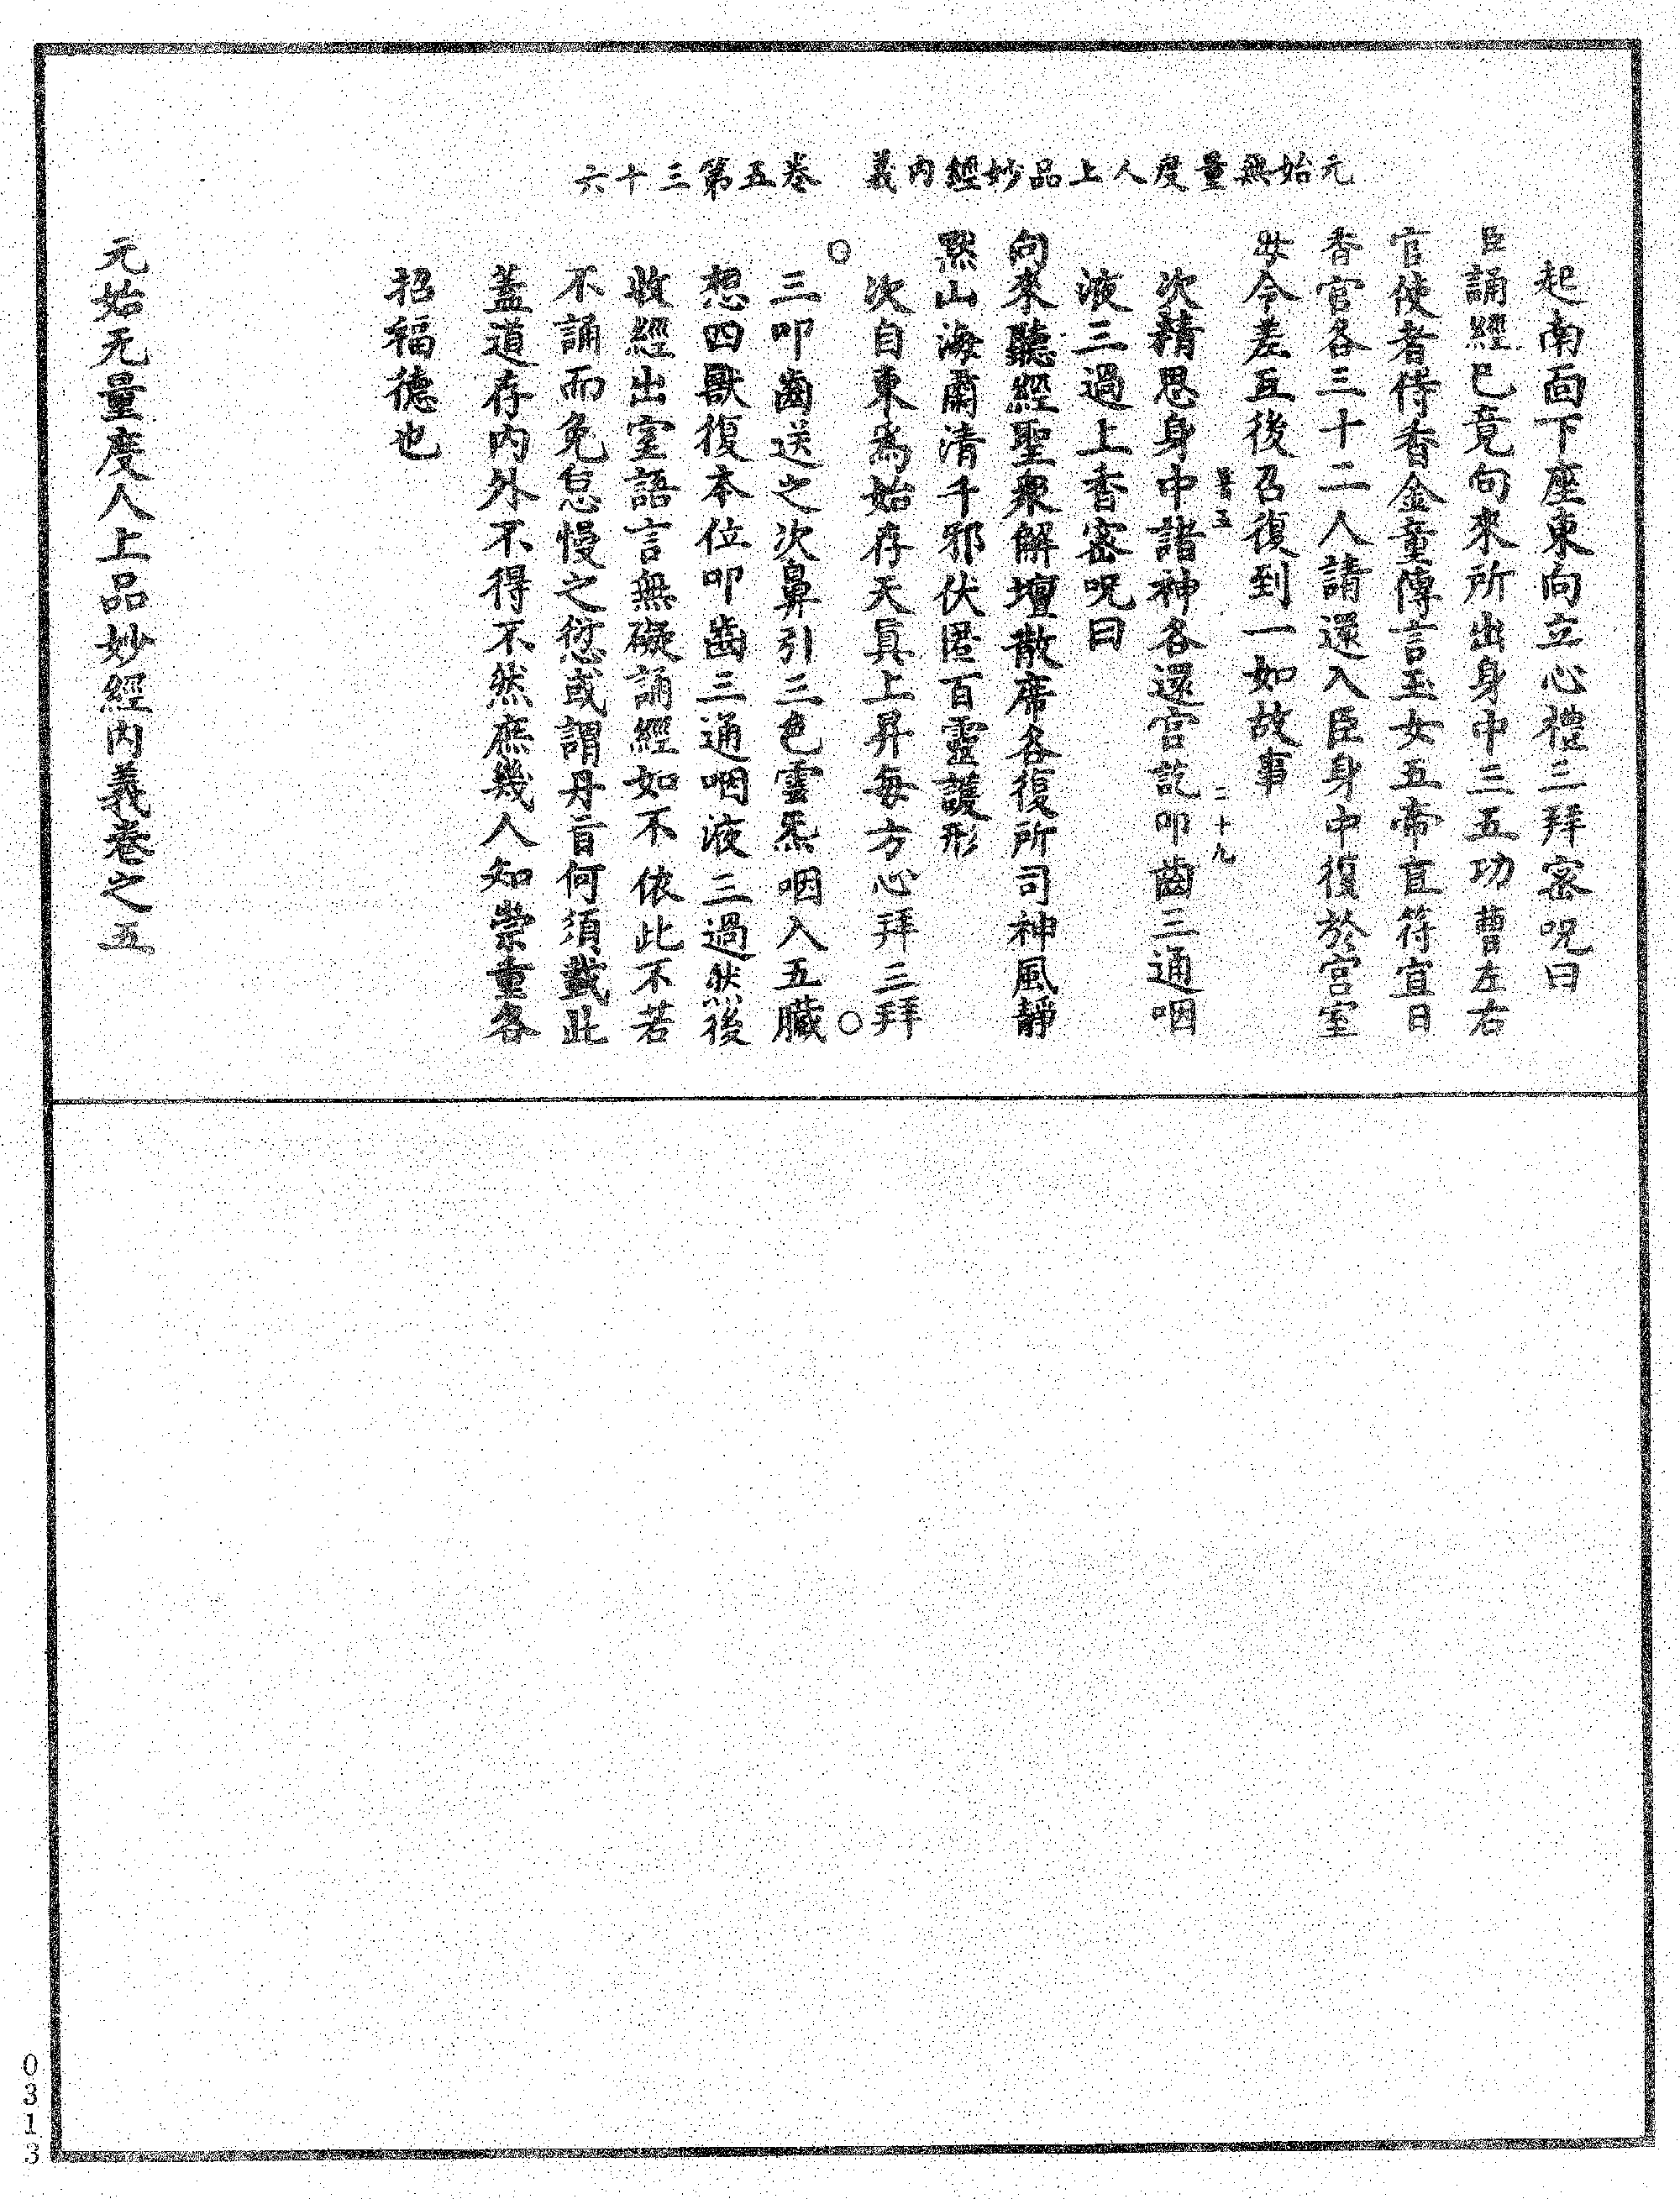 元始無量度人上品妙經內義　卷五第三十六
起南面下座東向立心禮三拜密呪曰
臣誦經已竟向來所出身中三五功曹左右
官使者侍香金童傳言玉女五帝直符直日
香官各三十二人請還入臣身中復於宮室
毋令差互後召復到一如故事
二十九
次精思身中諸神各還宮訖叩齒三通咽
液三過上香密呪曰
向來聽經聖衆解壇散席各復所司神風靜
默山海肅清千邪伏匿百靈護形
次自東爲始存天真上昇每方心拜三拜
○
○
三叩齒送之次鼻引三色靈炁咽入五臟
想四獸復本位叩齒三通咽液三過然後
收經出室語言無礙誦經如不依此不若
不誦而免怠慢之愆或謂丹旨何須載此
蓋道存內外不得不然庶幾人知崇重各
招福德也
元始无量度人上品妙經內義卷之五
0313